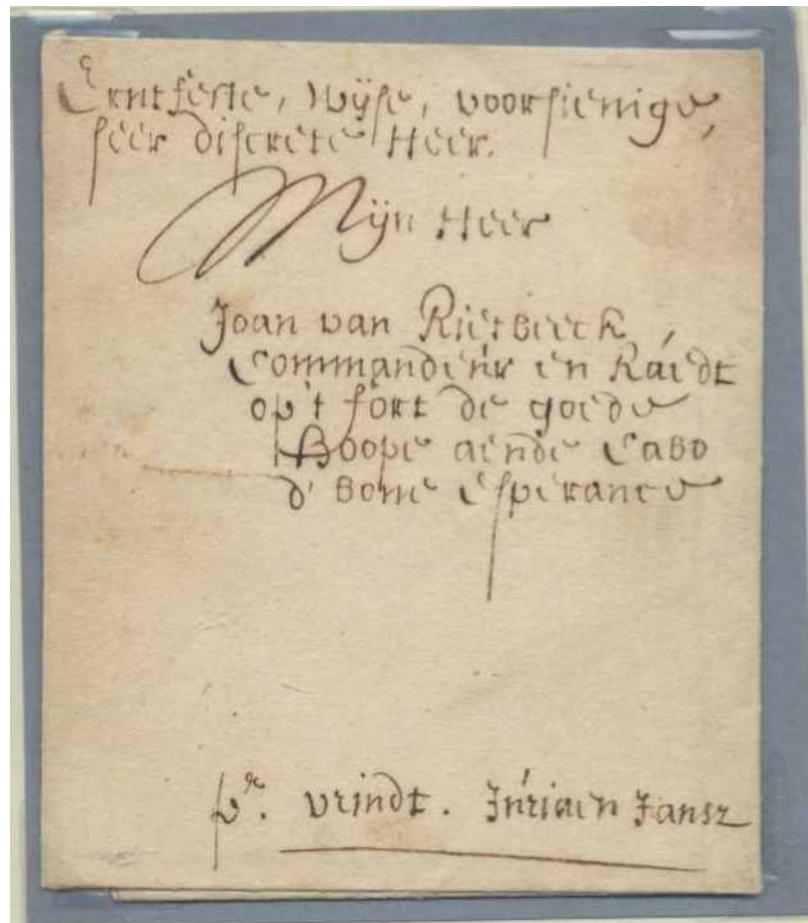 Erntfeste, Wijse, voorsienige,
seer discrete Heer.
Mijn Heer
Joan van Rietbeeck,
Commandeur en Raedt
op't fort de goede
Hoope aende Cabo
d' bone esperance
pr. vrindt. Juriaen Jansz